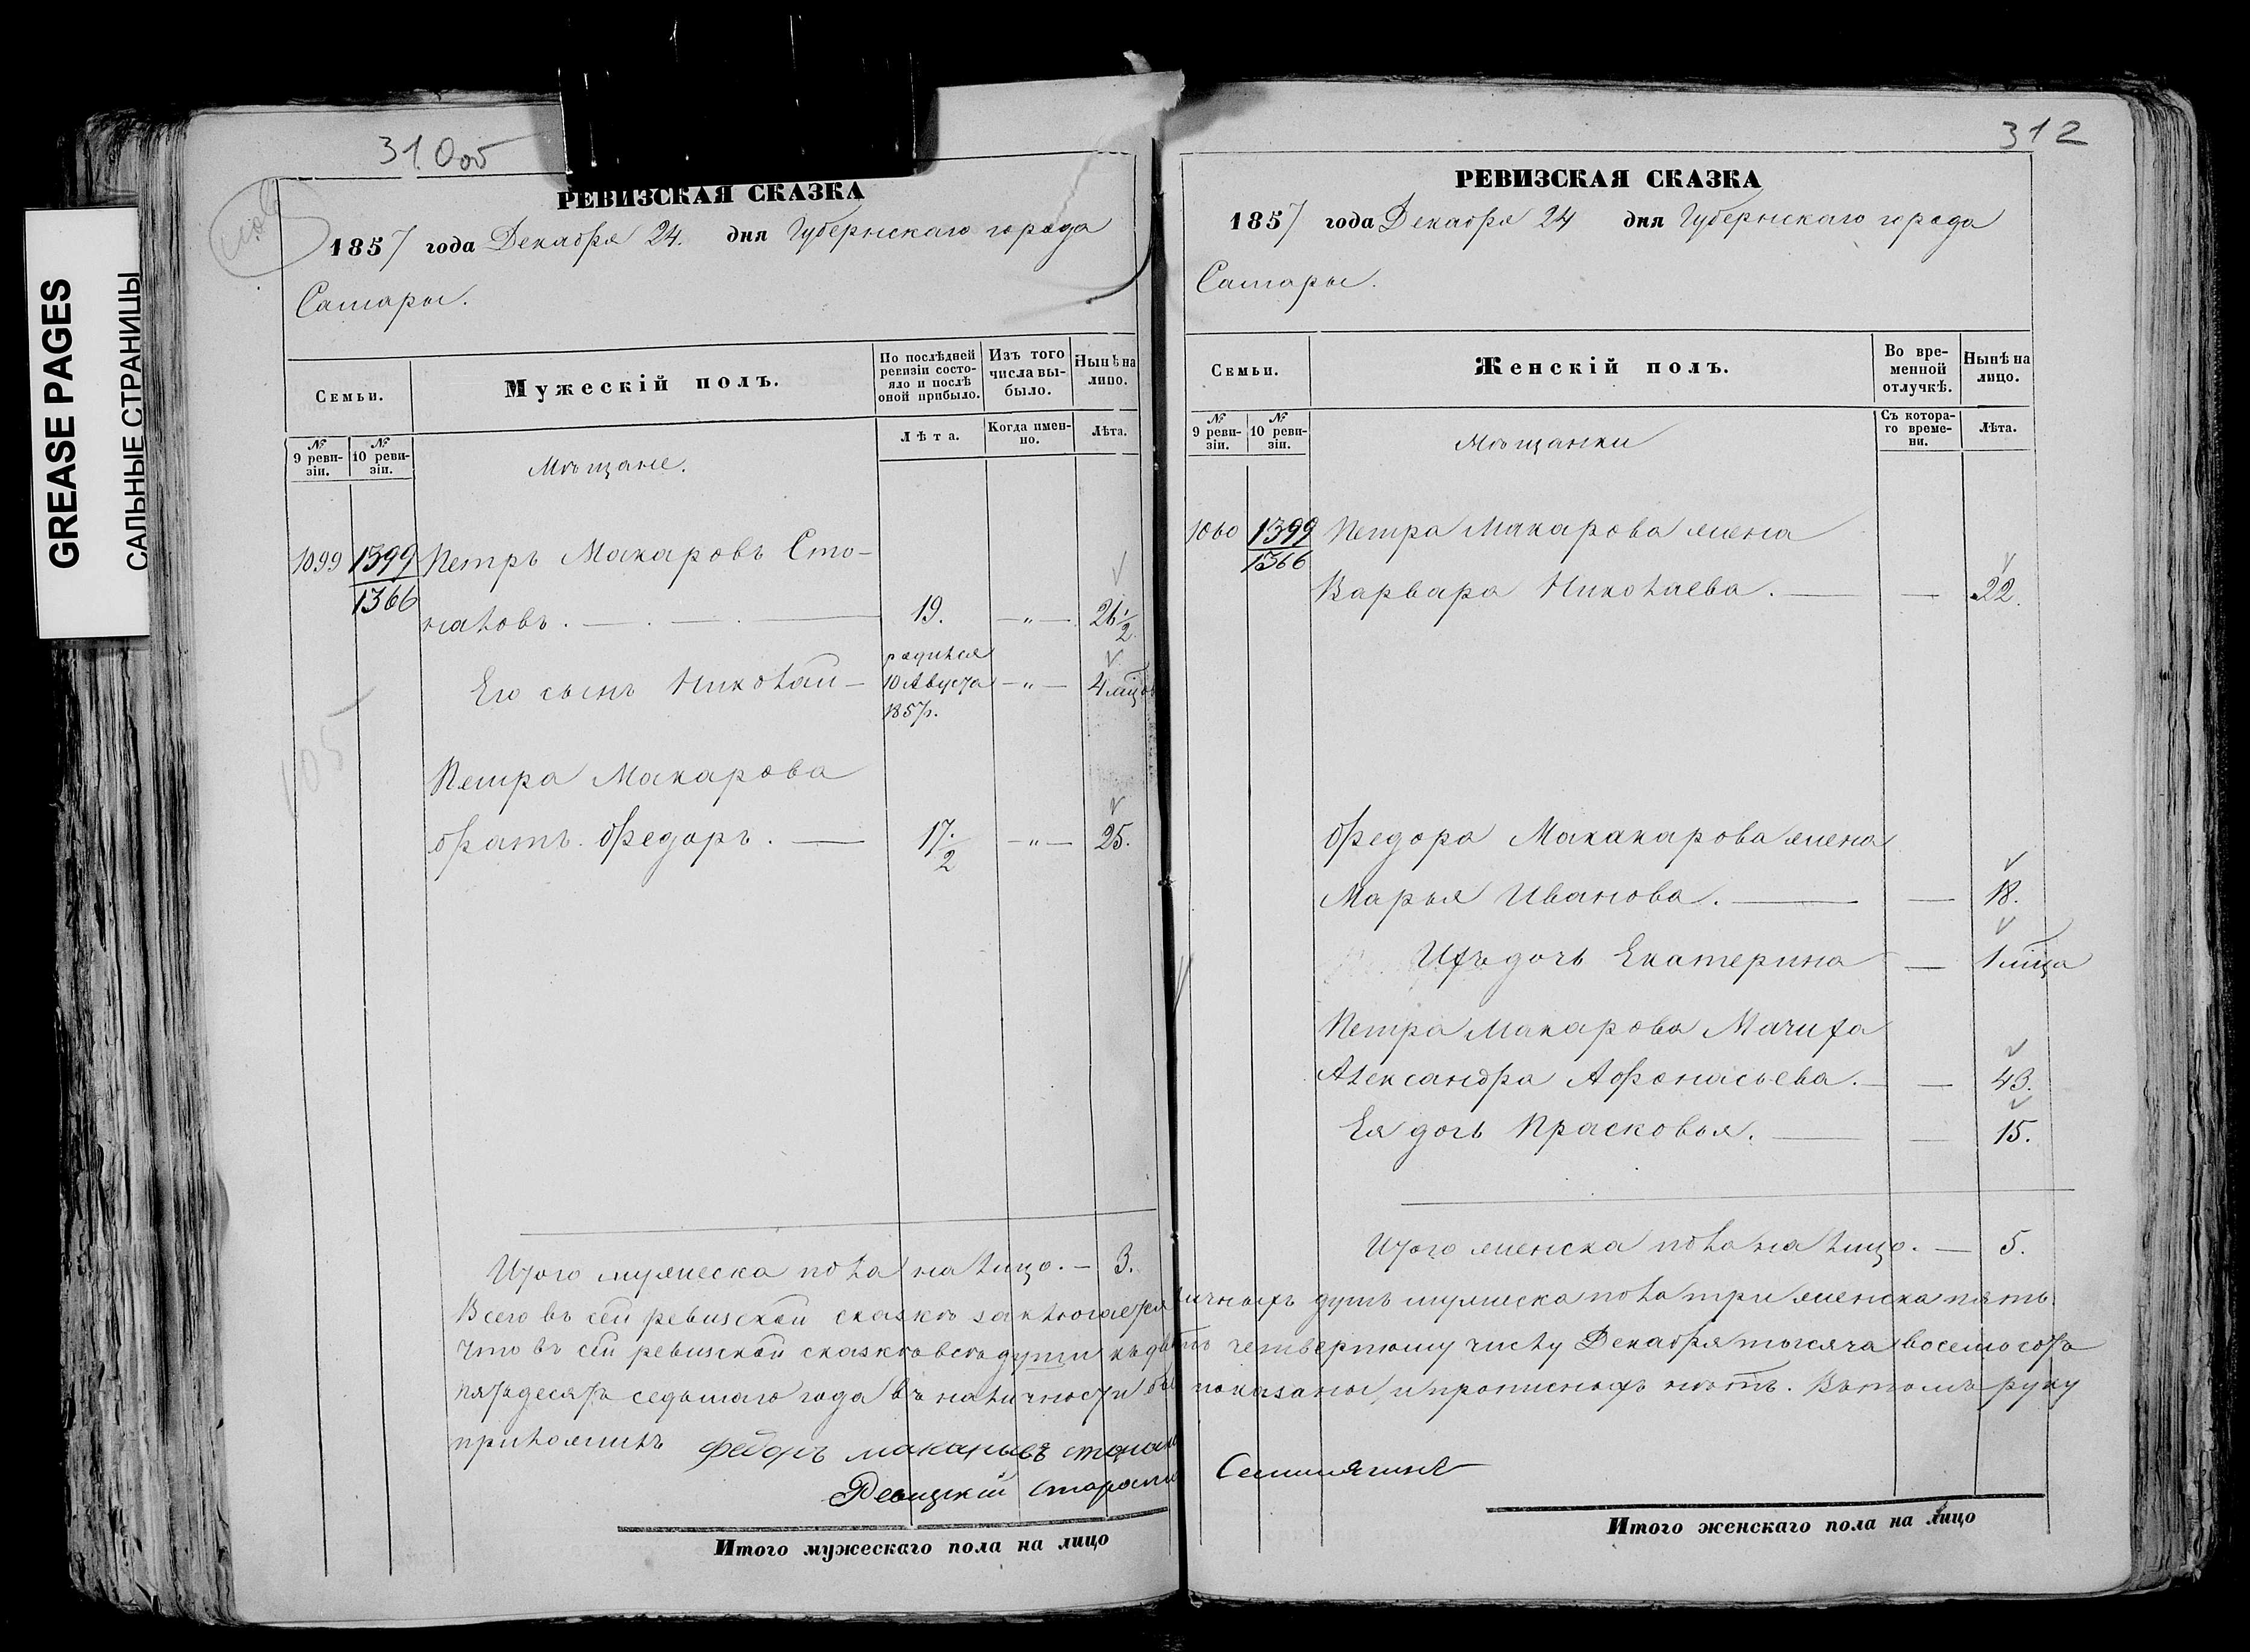 GREASE PAGES
САЛЬНЫЕ СТРАНИЦЫ
31.0об
РЕВИЗСКАЯ СКАЗКА
1857 года Декабря 24. дня Губернскаго города
Самары.
Семьи.
Мужескій полъ.
По послѣдней ревизіи состояло и послѣ оной прибыло.
Изъ того числа выбыло.
Нынѣ на лицо.
№ 9 ревизіи.
№ 10 ревизіи.
Мѣщане.
Лѣта.
Когда именно.
Лѣта.
1099 1399 Петръ Макаровъ Сто-
1366
наловъ. — 19. —„— 26 1/2
Его сынъ Николай — родился 10 Августа 1857г. —„— 4 мѣс
105
Петра Макарова
братъ Федоръ. — 17 1/2 —„— 25.
Итого мужеска пола на лицо. — 3.
Всего въ сей ревизской сказкѣ заключается
что въ сей ревизской сказкѣ всѣ души къ
пятьдесятъ седьмаго года въ наличности
приложилъ Федоръ макаръевъ
Ревизкій старо
Итого мужескаго пола на лицо
312
РЕВИЗСКАЯ СКАЗКА
1857 года Декабря 24 дня Губернскаго города
Самары.
Семьи.
Женскій полъ.
Во временной отлучкѣ.
Нынѣ на лицо.
№ 9 ревизіи.
№ 10 ревизіи.
Мѣщанки
Съ котораго времени.
Лѣта.
1060 1399 Петра Макарова жена
1366
Варвара Николаева. — — 22.
Федора Макакарова жена
Марья Иванова. — — 18.
Ихъ дочь Екатерина — 1 мѣца
Петра Макарова Мачиха
Александра Афонасьева. — — 43.
Ея дочь Прасковья. — — 15.
Итого женска пола на лицо. — 5.
ичныхъ душъ мужеска пола три женска пять.
четвертому числу Декабря тысяча восемо сотъ
показаны, и прописныхъ нѣтъ. Въ томъ руку
Итого женскаго пола на лицо